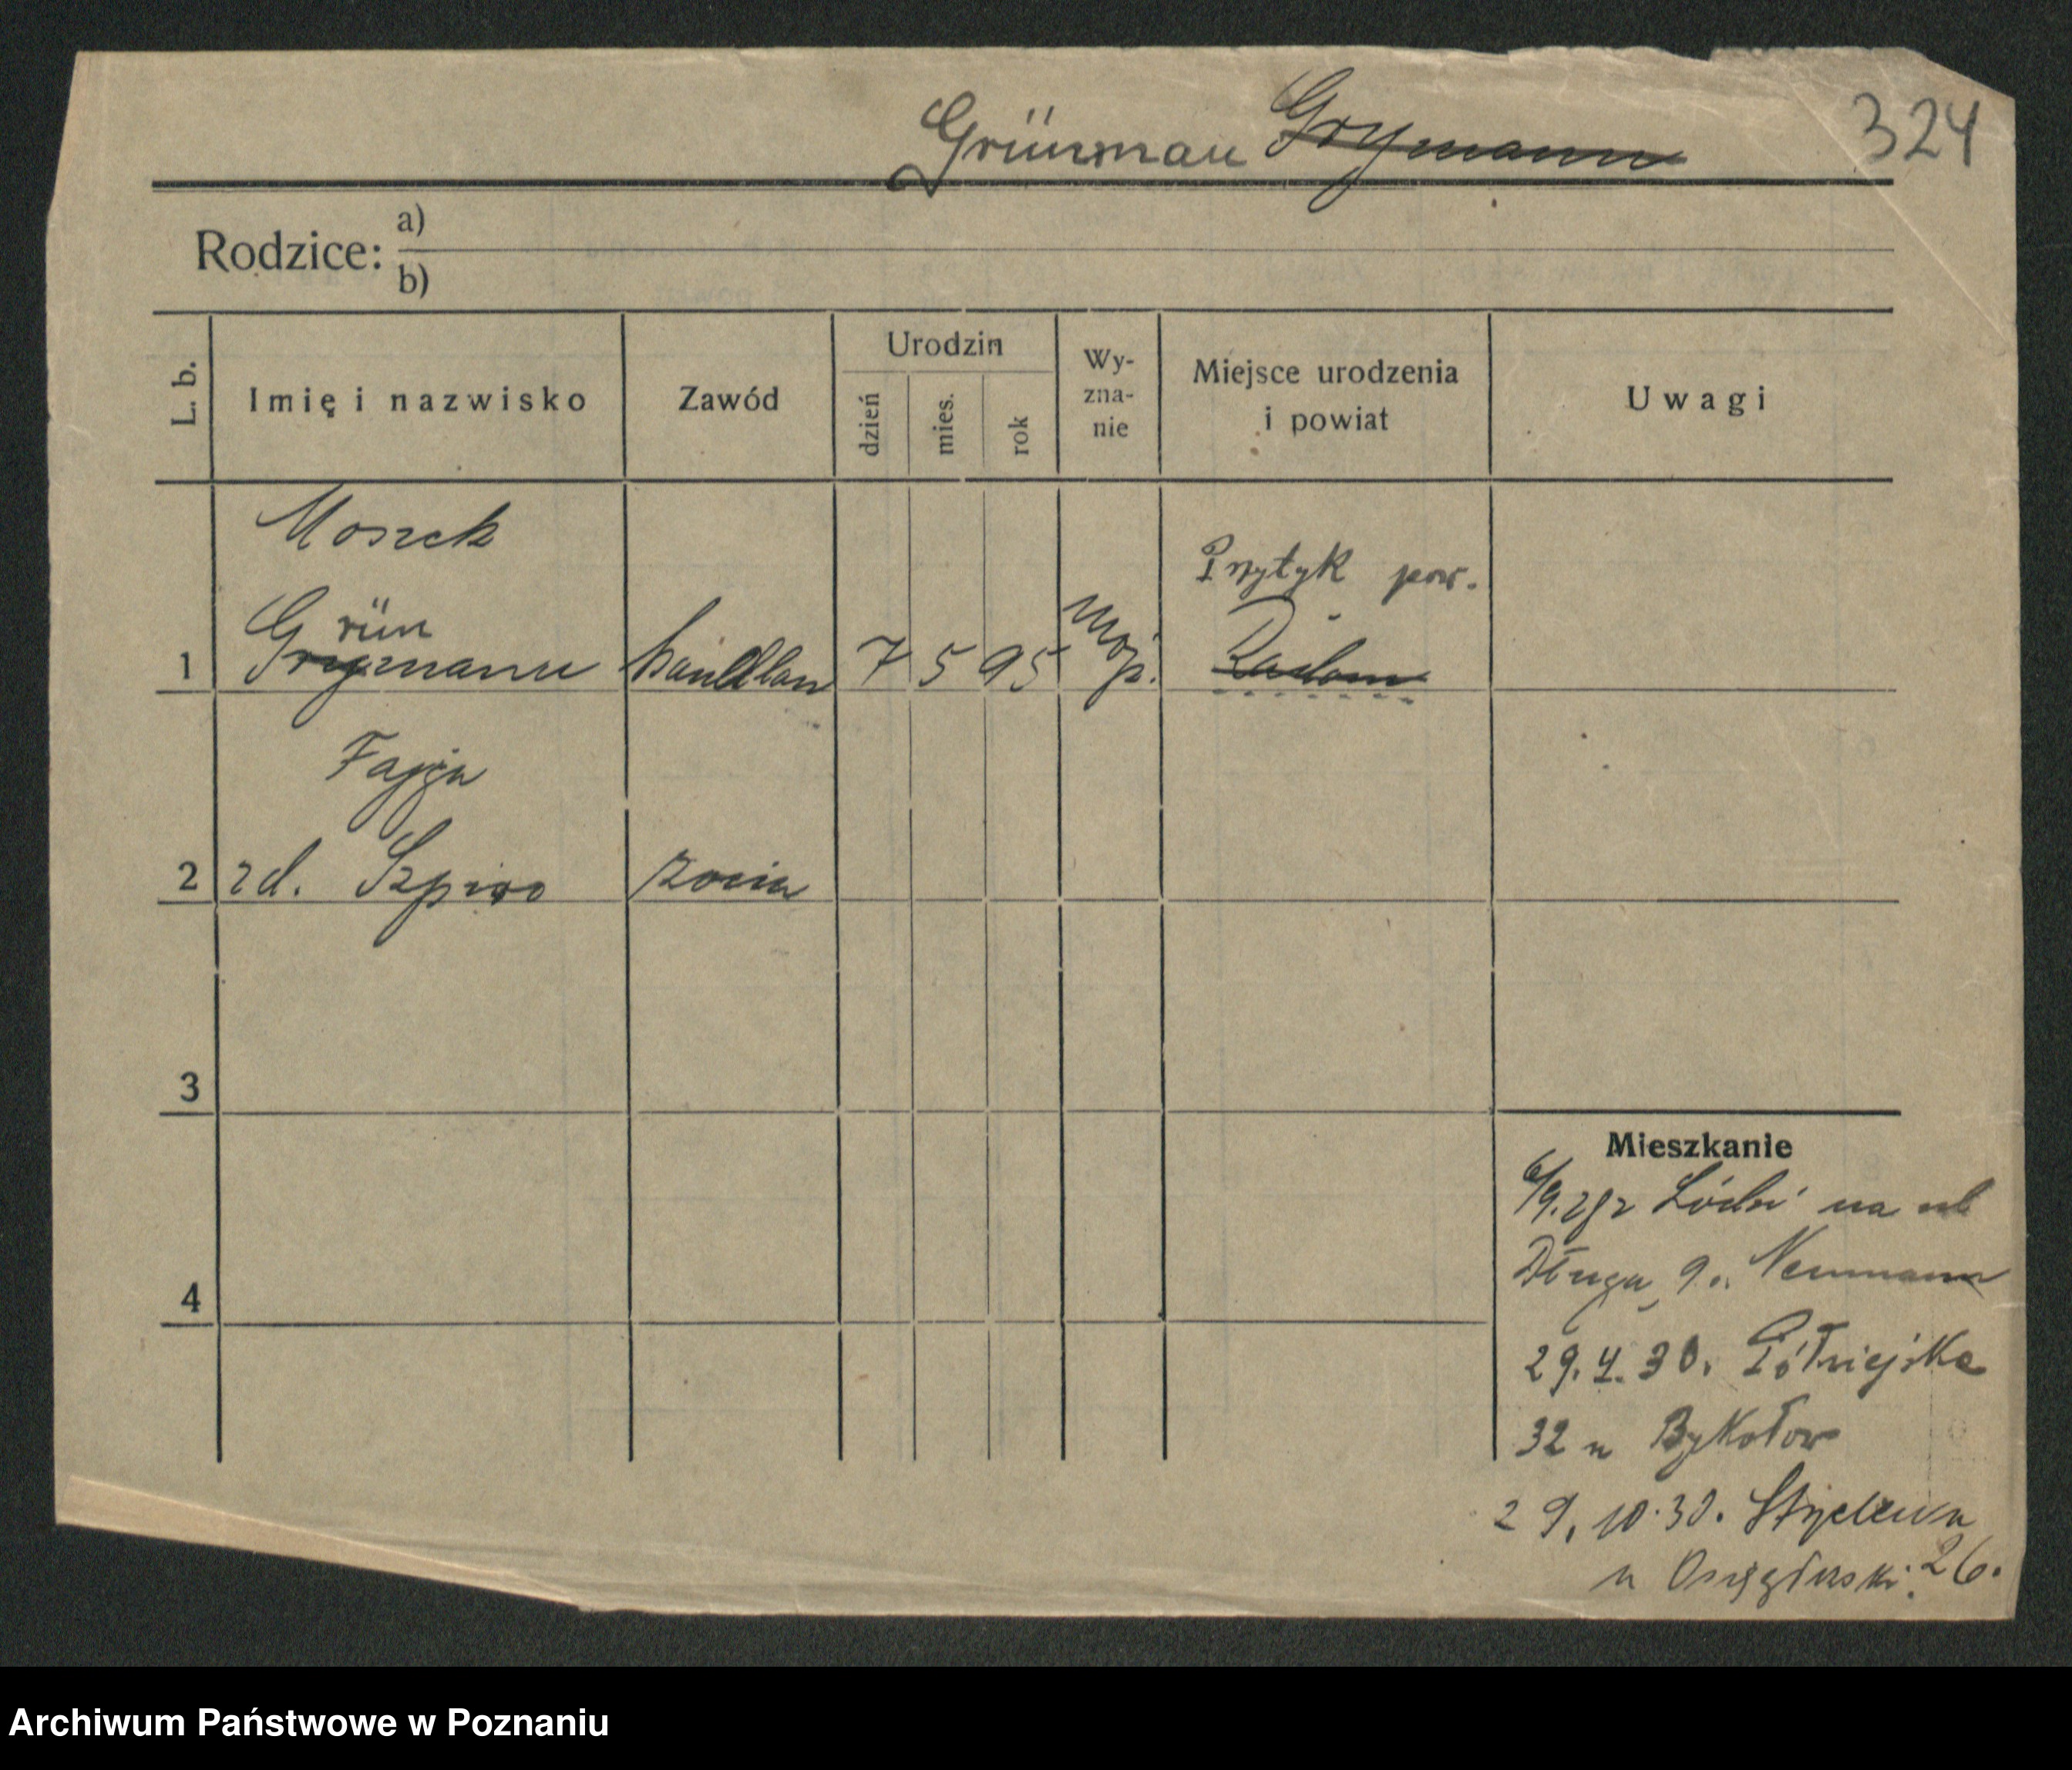 Grünman Grymann 324
Rodzice: a)
b)
L. b. Imię i nazwisko Zawód Urodzin dzień mies. rok Wy-zna-nie Miejsce urodzenia i powiat Uwagi
Moszek
Przytyk pow.
rün
1 Grymann handlarz 7 5 95 mojż. Radom
Fajga
2 zd. Szpiro żona
3
4
Mieszkanie
6/9.28 z Łodzi na ul
Długa 9. Neumann
29.4.30. Półwiejska
32 u
29.10.30. Strzelecka
u 26.
Archiwum Państwowe w Poznaniu